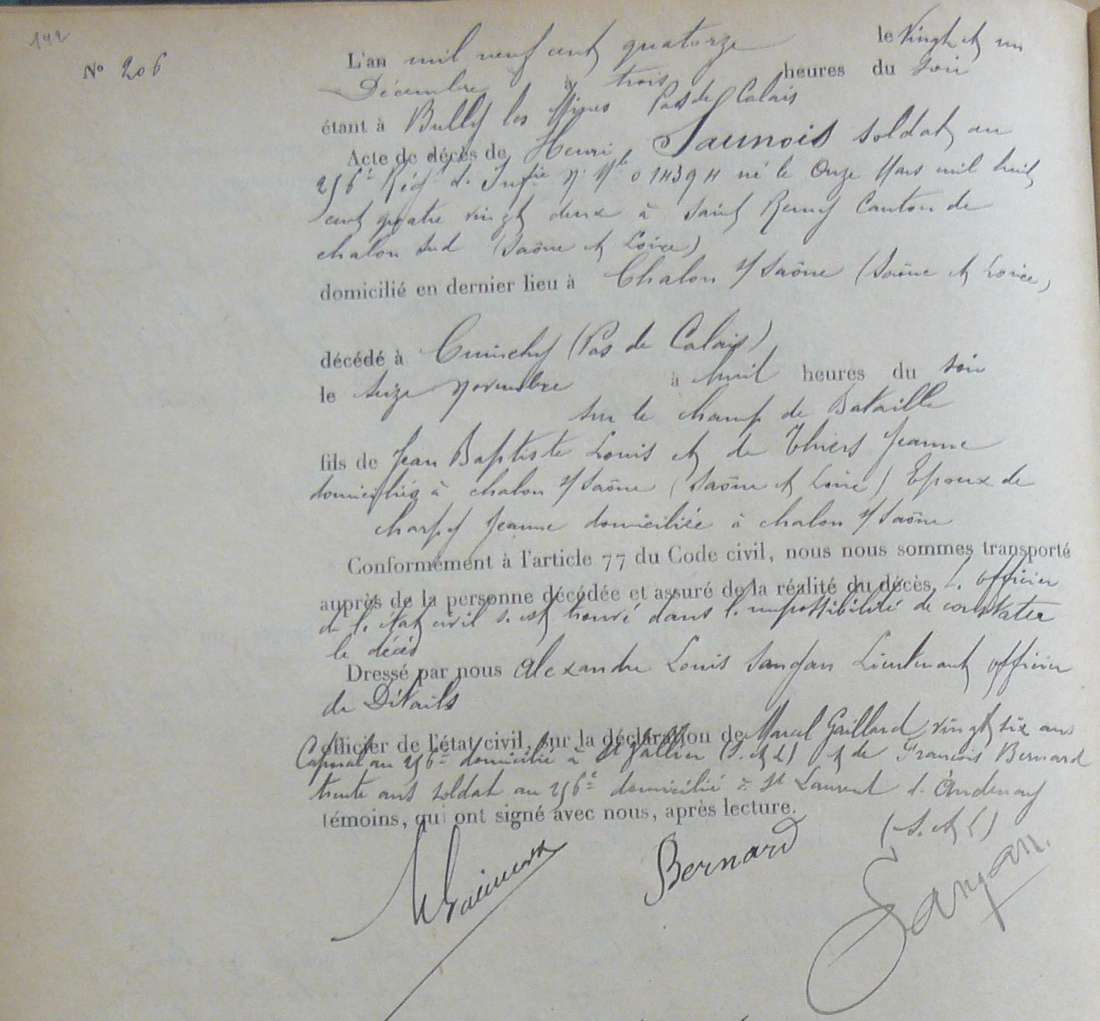 192
N° 206
L'an mil neuf cent quatorze le Vingt et un
Décembre à trois heures du soir
étant à Bully les Mines Pas de Calais
Acte de décès de Henri Jaunois soldat au
256e Régt d'Infie né le Onze Mars mil huit
cent quatre vingt deux à Saint Remy Canton de
chalon sud (Saône et Loire)
domicilié en dernier lieu à Chalon s/Saône (Saône et Loire)
décédé à Cuinchy (Pas de Calais)
le seize novembre à huit heures du soir
sur le champ de Bataille
fils de Jean Baptiste Louis et de Thiers Jeanne
domiciliés à chalon s/Saône (Saône et Loire) Epoux de
Charpy Jeanne domiciliée à chalon s/Saône
Conformément à l'article 77 du Code civil, nous nous sommes transporté
auprès de la personne décédée et assuré de la réalité du décès, L'officier
de l'état civil s'est trouvé dans l'impossibilité de constater
le décès
Dressé par nous Alexandre Louis Sanjan Lieutenant officier
de Détails
officier de l'état civil, sur la déclaration de Marcel Gaillard vingt six ans
Caporal au 256e domicilié à (S. et L) et de François Bernard
trente ans soldat au 256e domicilié à St Laurent d'Andenay
témoins, qui ont signé avec nous, après lecture. (S. et L)
Bernard
Sanjan.